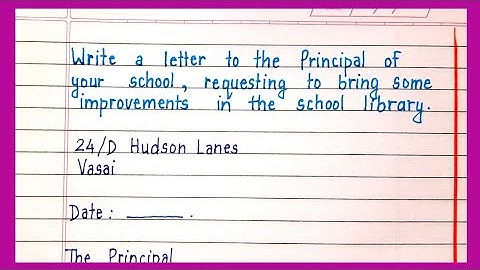 Write a letter to the Principal of
your school, requesting to bring some
improvements in the school library.
24/D Hudson Lanes
Vasai
Date: ______.
The Principal